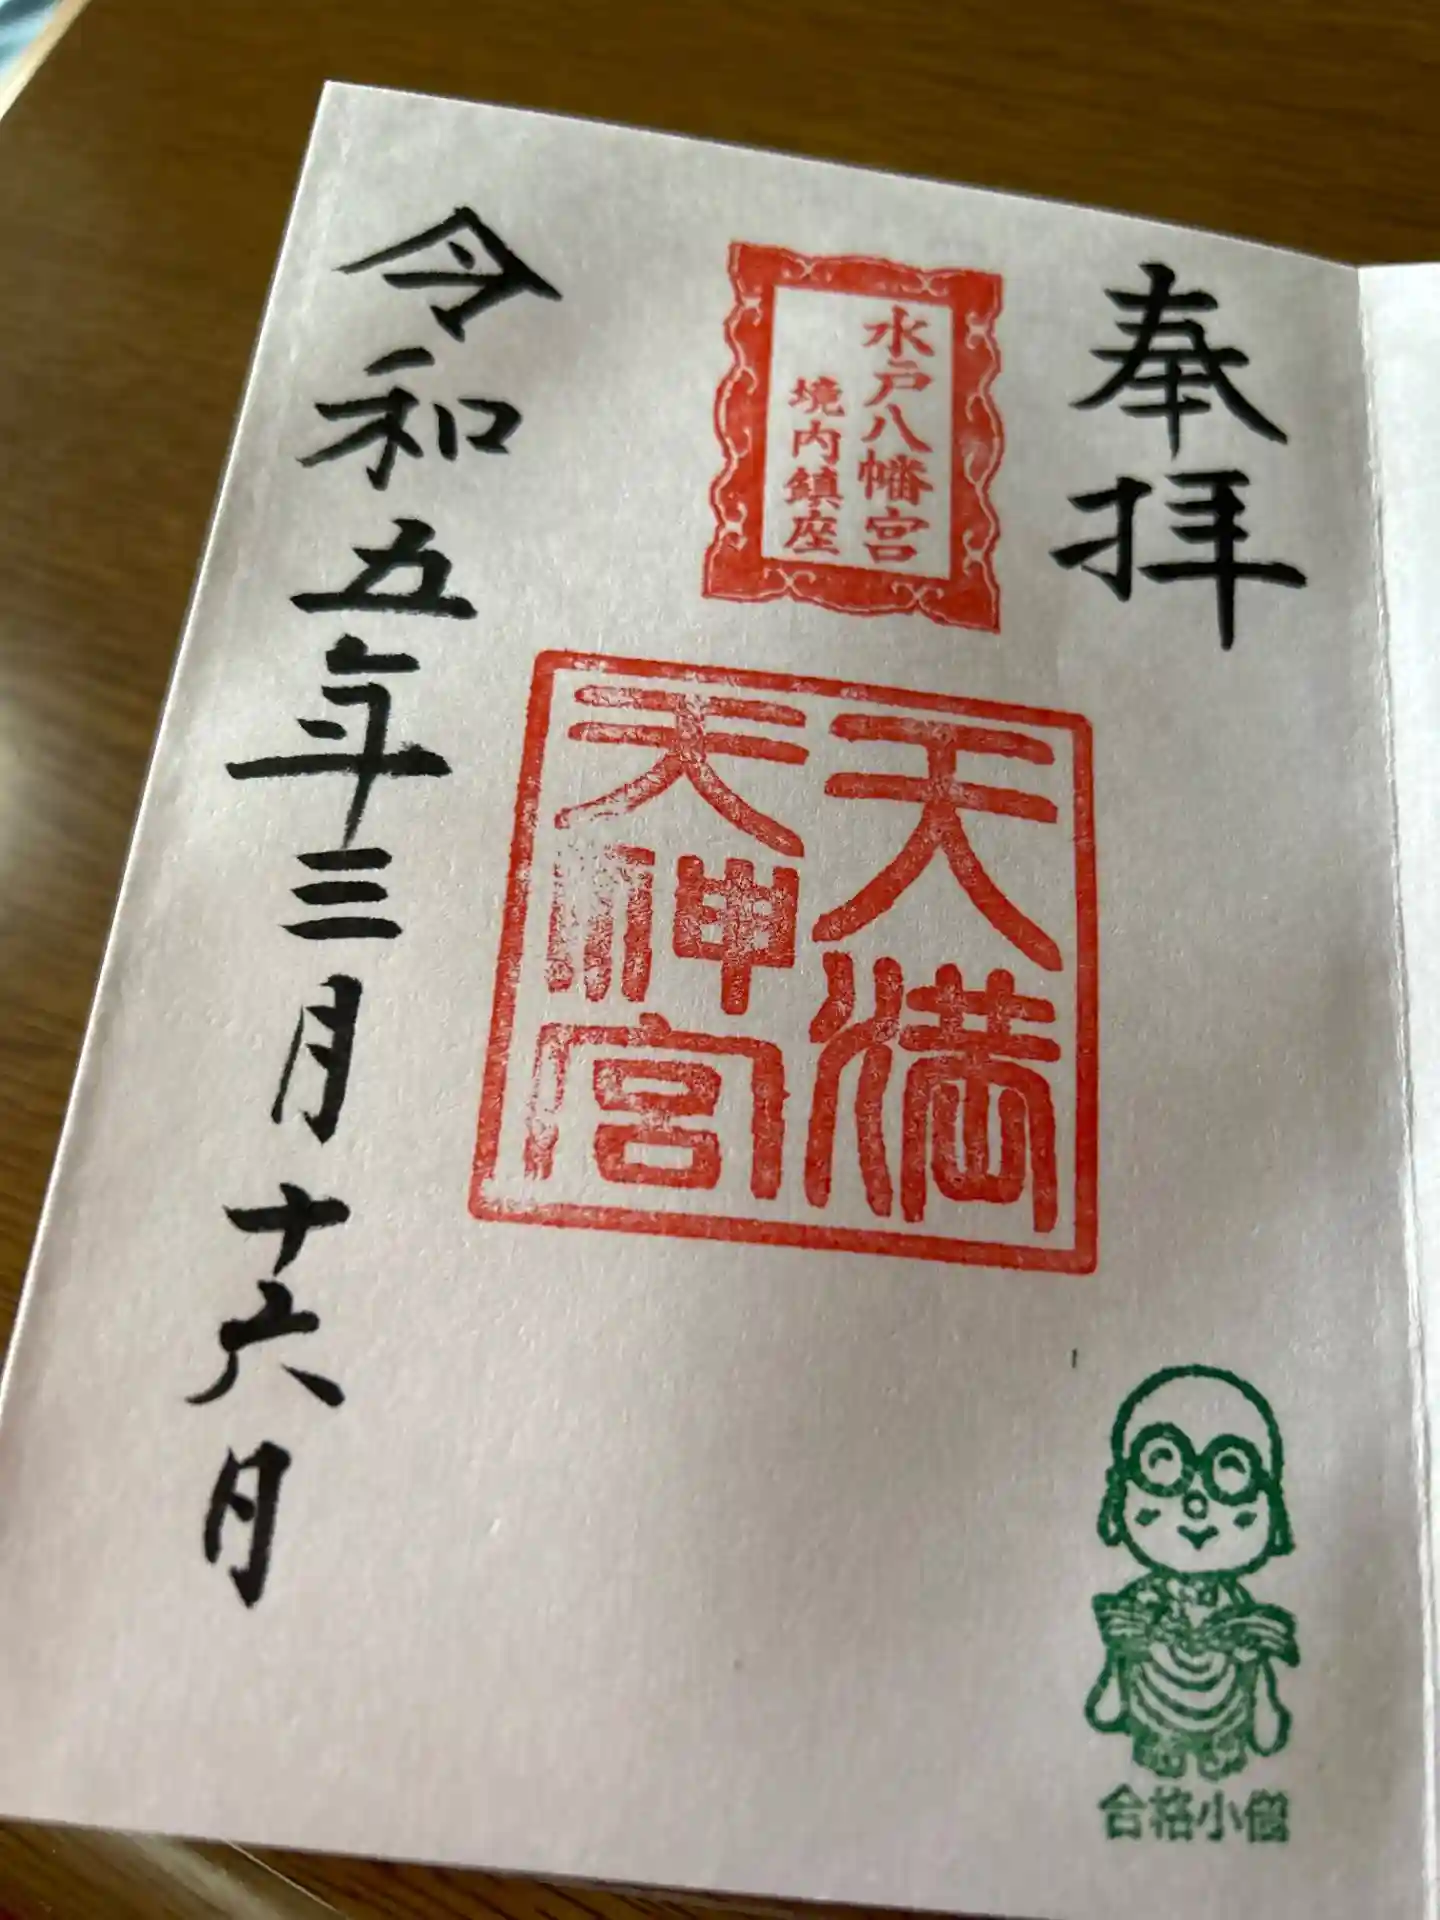 奉拝
水戸八幡宮
境内鎮座
天満
天神宮
令和五年三月十六日
合格小僧